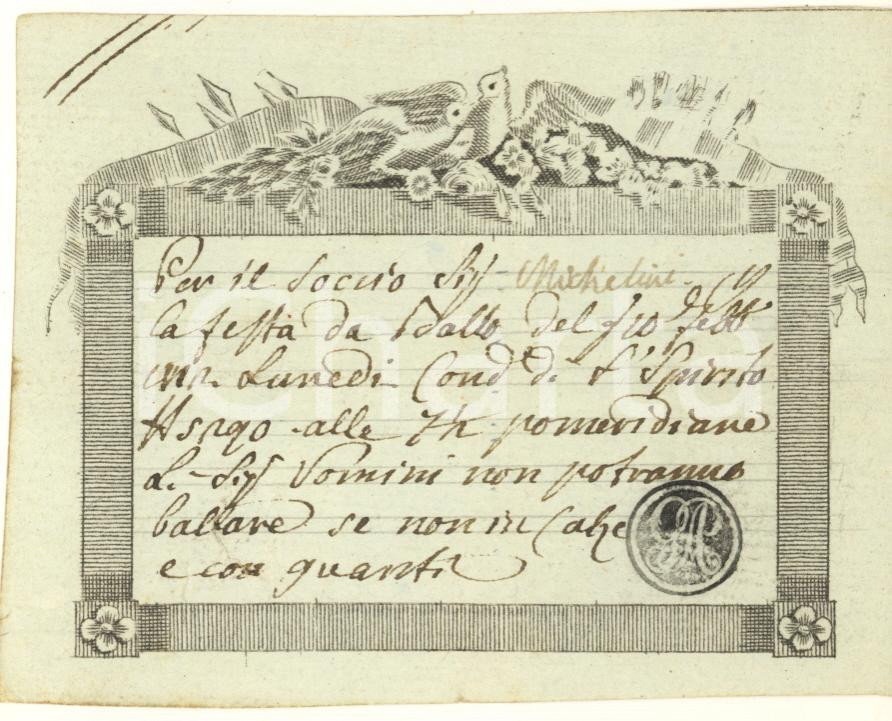 Per il Soccio Sig Michelini
la festa da Ballo del 10 febb
Lunedi Cond di S Spirito
alle 7 pomeridiane
Sig Uomini non potranno
ballare se non in Calze
e con guanti